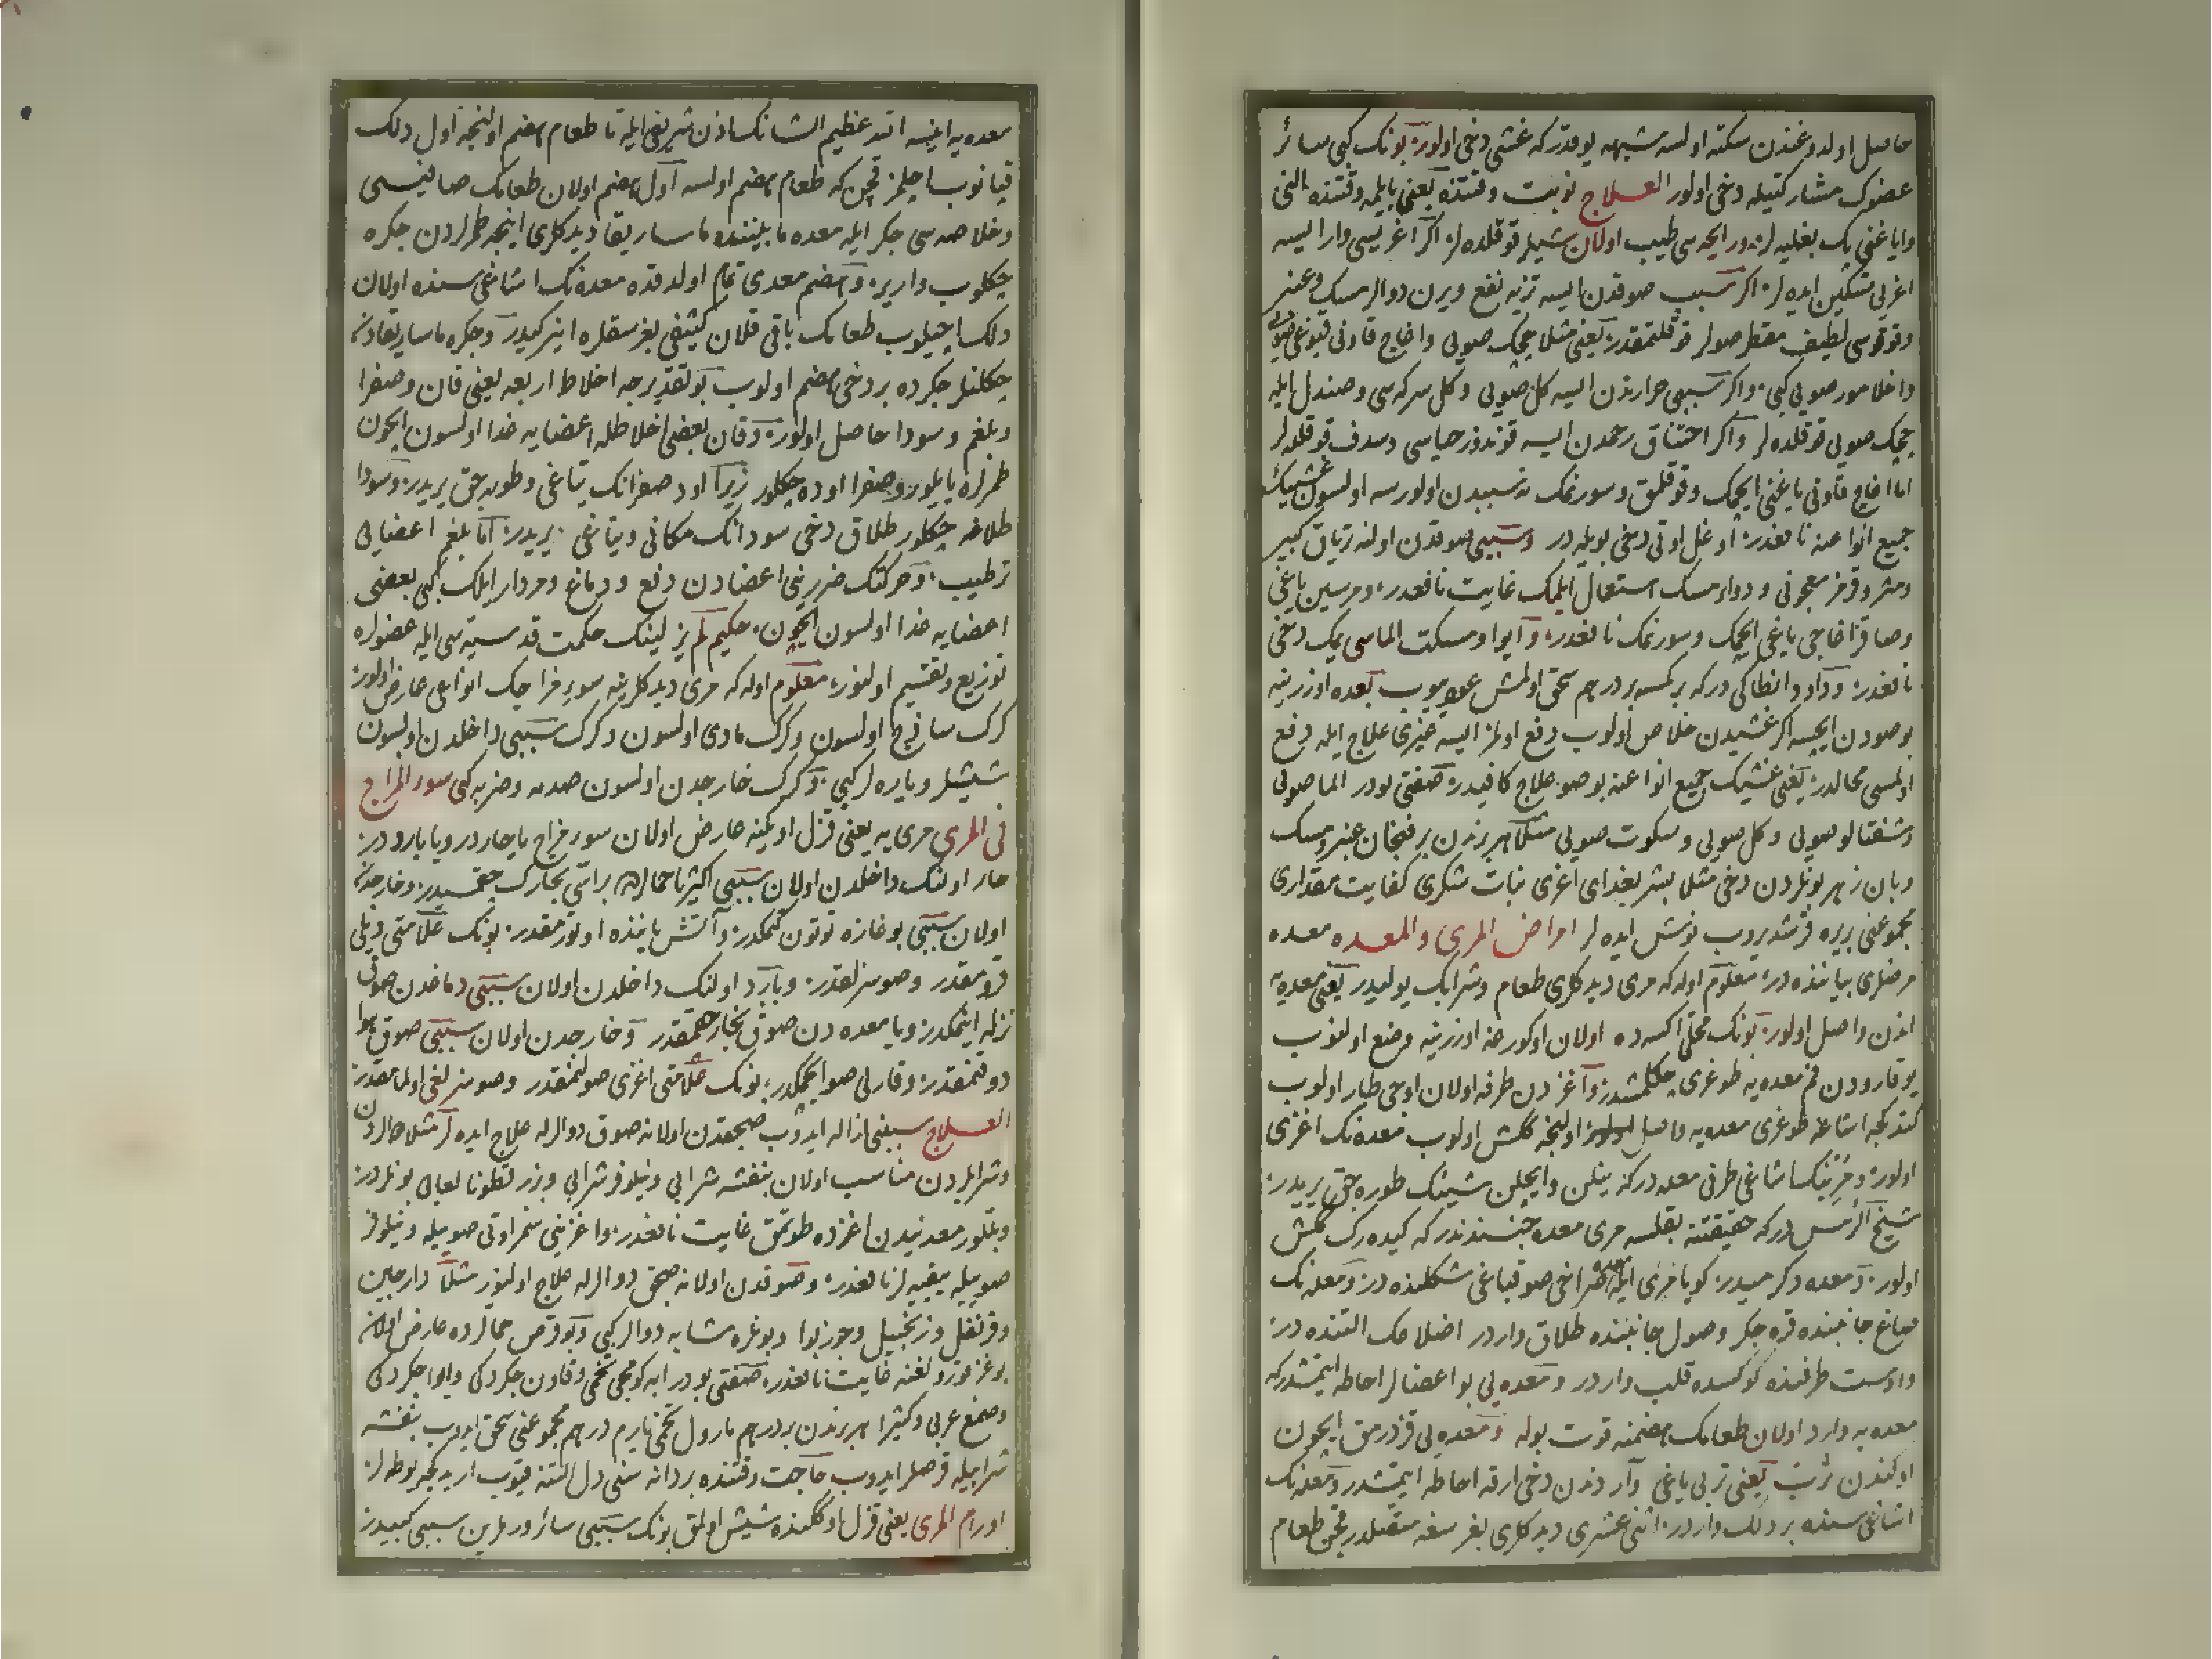 حاصل اولدوغندن سكته اولسه شبهه يوقدر كه غشى دخى اولور بونك كبى سائر
عضوك مشاركتيله دخى اولور العلاج نوبت وقتنده يعنى بايلمه وقتنده النى
واياغنى بك بغليه لر ورايحه سى طيب اولان شيلر قوقلده لر اكر اغريسى وار ايسه
اغريى تسكين ايده لر اكر سبب صوقدن ايسه تزيه نفع ويرن دوالر مسك وعنبر
وقوقوسى لطيف مقطر صولر قوقلتمقدر يعنى مثلا چچك صويى واغاج قاونى قبوغى صويى
داخلامور صويى كبى واكر سببى حرارتدن ايسه كل صويى وكل سركه سى وصندل ايله
چچك صويى قوقلده لر واكر اختناق رحمدن ايسه قوندوز حياسى وسدف قوقلدلر
اما اغاج قاونى ياغنى ايچمك وقوقلمق وسورنمك نه سببدن اولورسه اولسون غشينك
جميع انواعنه نافعدر اوغل اوتى دخى بويله در وسببى صوقدن اولنه ترياق كبير
ومثروديطوز معجونى ودواء مسك استعمال ايلمك غايت نافعدر ومرسين ياغى
وصاقز اغاجى ياغى ايچمك وسورنمك نافعدر وايوا ومسكت الماسى يمك دخى
نافعدر وداود انطاكى دركه بركمسه بر درهم سحق اولمش عود ييوب بعده اوزرينه
بو صودن ايچسه اكر غشيدن خلاص اولوب دفع اولمز ايسه غيرى علاج ايله دفع
اولمسى محالدر يعنى غشينك جميع انواعنه بو صو علاج كافيدر صفتى بودر الما صويى
وشفتالو صويى وكل صويى وسكوت صويى مثلا هر برندن بر فنجان عنبر ومسك
وبان زهر بونلردن دخى مثلا بشر بغداى اغرى نبات شكرى كفايت مقدارى
مجموعنى بريره قرشديروب نوش ايده لر امراض المرى والمعده معده
مرضلرى بياننده در معلوم اوله كه مرى ديدكلرى طعام وشرابك يوليدر يعنى معديه
اندن واصل اولور بونك محلى اكسه ده اولان اوكورغه اوزرينه وضع اولنوب
يوقارودن فم معديه طوغرى چكلمشدر واغزدن طرفه اولان اوجى طار اولوب
كتدكجه اشاغه طوغرى معديه واصل اولنجه كنش اولوب معده نك اغزى
اولور ومرينك اشاغى طرفى معده دركه ينلن وايچلن شيئك طوره جق يريدر
شيخ الرئيس دركه حقيقتنه بقلسه مرى معده جنسندندر كه كيده رك كنش
اولور ومعده دكرميدر كويا مرى ايله معده صراحى صو قباغى شكلنده در ومعده نك
صاغ جانبنده قره جكر وصول جانبنده طلاق واردر اضلاعك التنده در
واوست طرفنده كوكسده قلب واردر ومعده يى بو اعضالر احاطه ايتمشدركه
معديه وارد اولان طعامك هضمنه قوت بوله ومعده يى قزدرمق ايچون
اوكندن ثرب يعنى تربى ياغى واردندن دخى ارقه احاطه ايتمشدر ومعده نك
اشاغيسنده بر دلك واردر اثنى عشرى ديدكلرى بغرسغه متصلدر قچن طعام
معديه اينسه الله عظيم الشانك اذن شريفى ايله تا طعام هضم اولنجه اول دلك
قپانوب اچلمز قچن كه طعام هضم اولسه اول هضم اولان طعامك صافيسى
وخلاصه سى جكر ايله معده مابيننده ماساريقا ديدكلرى اينجه طمرلردن جكره
چكلوب واريرر وهضم معدى تمام اولدقده معده نك اشاغيسنده اولان
دلك اچيلوب طعامك باقى قلان كثيفى بغرسقلره اينر كيدر وجكره ماساريقادن
چكلنلر جكرده بر دخى هضم اولوب بو تقديرجه اخلاط اربعه يعنى قان وصفرا
وبلغم وسودا حاصل اولور وقان بعضى اخلاطله اعضايه غدا اولسون ايچون
طمرلره ياييلور وصفرا اوده چكلور زيرا اود صفرانك يتاغى وطوره جق يريدر وسودا
طلاغه چكلور طلاق دخى سودانك مكانى ويتاغى يريدر اما بلغم اعضايى
ترطيب وحركتك ضررينى اعضادن دفع ودماغ ومردار ايلك كبى بعضى
اعضايه غدا اولسون ايچون حكيم لم يزلينك حكمت قدسيه سى ايله عضولره
توزيع وتقسيم اولنور معلوم اوله كه مرى ديدكلرينه سوء مزاجك انواعى عارض اولور
كرك ساذج اولسون وكرك مادى اولسون وكرك سببى داخلدن اولسون
شيشلر وياره لر كبى وكرك خارجدن اولسون صدمه وضربه كبى سوء المزاج
فى المرى مرى يه يعنى قزل اويكنه عارض اولان سوء مزاج يا حاردر ويا بارددر
حار اولنك داخلدن اولان سببى اكثريا حمالرده براتى بخارك چقمسيدر وخارجدن
اولان سببى بوغازه توتون كتمكدر وآتش ياننده اوتورمقدر بونك علامتى ديلى
قرومقدر وصوسزلقدر وبارد اولنك داخلدن اولان سببى دماغدن صوق
نزله اينمكدر ويا معده دن صوق بخار چقمقدر وخارجدن اولان سببى صوق هوا
دوقنمقدر وقارلى صو ايچمكدر بونك علامتى اغزى صولنمقدر وصوسزلغى اولمامقدر
العلاج سببنى ازاله ايدوب صيجقدن اولانه صوق دوالرله علاج ايده لر مثلا حالردن
وشرابلردن مناسب اولان بنفشه شرابى ونيلوفر شرابى وبزر قطونا لعابى بونلردر
وبللور معدنيدن اغزده طوتمق غايت نافعدر واغزينى سمزاوتى صوييله ونيلوفر
صوييله ييقيه لر نافعدر وصوقدن اولانه صيجق دوالرله علاج اولنور مثلا دارچين
وقرنفل وزنجبيل وجوز بوا وبونلره مشابه دوالر كبى وبو قرص حمالرده عارض اولان
بوغز قورولغنه غايت نافعدر صفتى بودر ابه كومجى تخمى وقاون جكردكى وايوا جكردكى
وصمغ عربى وكثيرا هر برندن بر درهم مارول تخمى يارم درهم مجموعنى سحق ايدوب بنفشه
شرابيله قرصلر ايدوب حاجت وقتنده بر دانه سنى دل التنه قيوب اريدكجه يوطه لر
اورام المرى يعنى قزل اوكلنده شيش اولمق بونك سببى سائر ورملرين سببى كبيدر